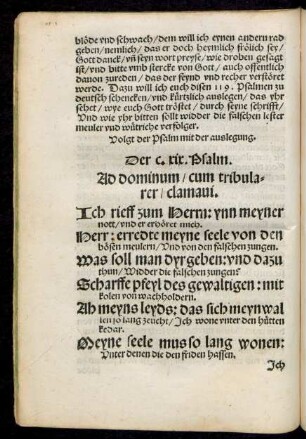 blöde und schwach / dem will ich eynen andern rad
geben / nemlich / das er doch heymlich frölich sey /
Gott danck / uñ seyn wort preyse / wie droben gesagt
ist / und bitte umb stercke von Gott / auch offentlich
davon zureden / das der feynd und recher verstöret
werde. Dazu will ich euch disen 119. Psalmen zu
deutsch schencken / und kürtzlich auslegen / das yhr
sehet / wye euch Gott tröstet / durch seyne schrifft /
Und wie yhr bitten sollt widder die falschen lester
meuler und wütriche verfolger.
Volgt der Psalm mit der auslegung.
Der c. xix. Psalm.
Ad dominum / cum tribula-
rer / clamavi.
Ich rieff zum Herrn: ynn meyner
nott / und er erhöret mich.
Herr: erredte meyne seele von den
bösen meulern / Und von den falschen zungen.
Was soll man dyr geben: und dazu
thun / Widder die falschen zungen?
Scharffe pfeyl des gewaltigen: mit
kolen von wachholdern.
Ah meyns leyds: das sich meyn wal
len so lang zeucht / Ich wone unter den hütten
kedar.
Meyne seele mus so lang wonen:
Unter denen die den friden hassen.
Ich